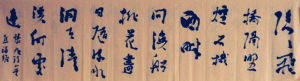 隱隱飛
橋隔野
煙石磯
西畔
問漁船
桃花盡
日隨流水
洞在清
溪何處
邊